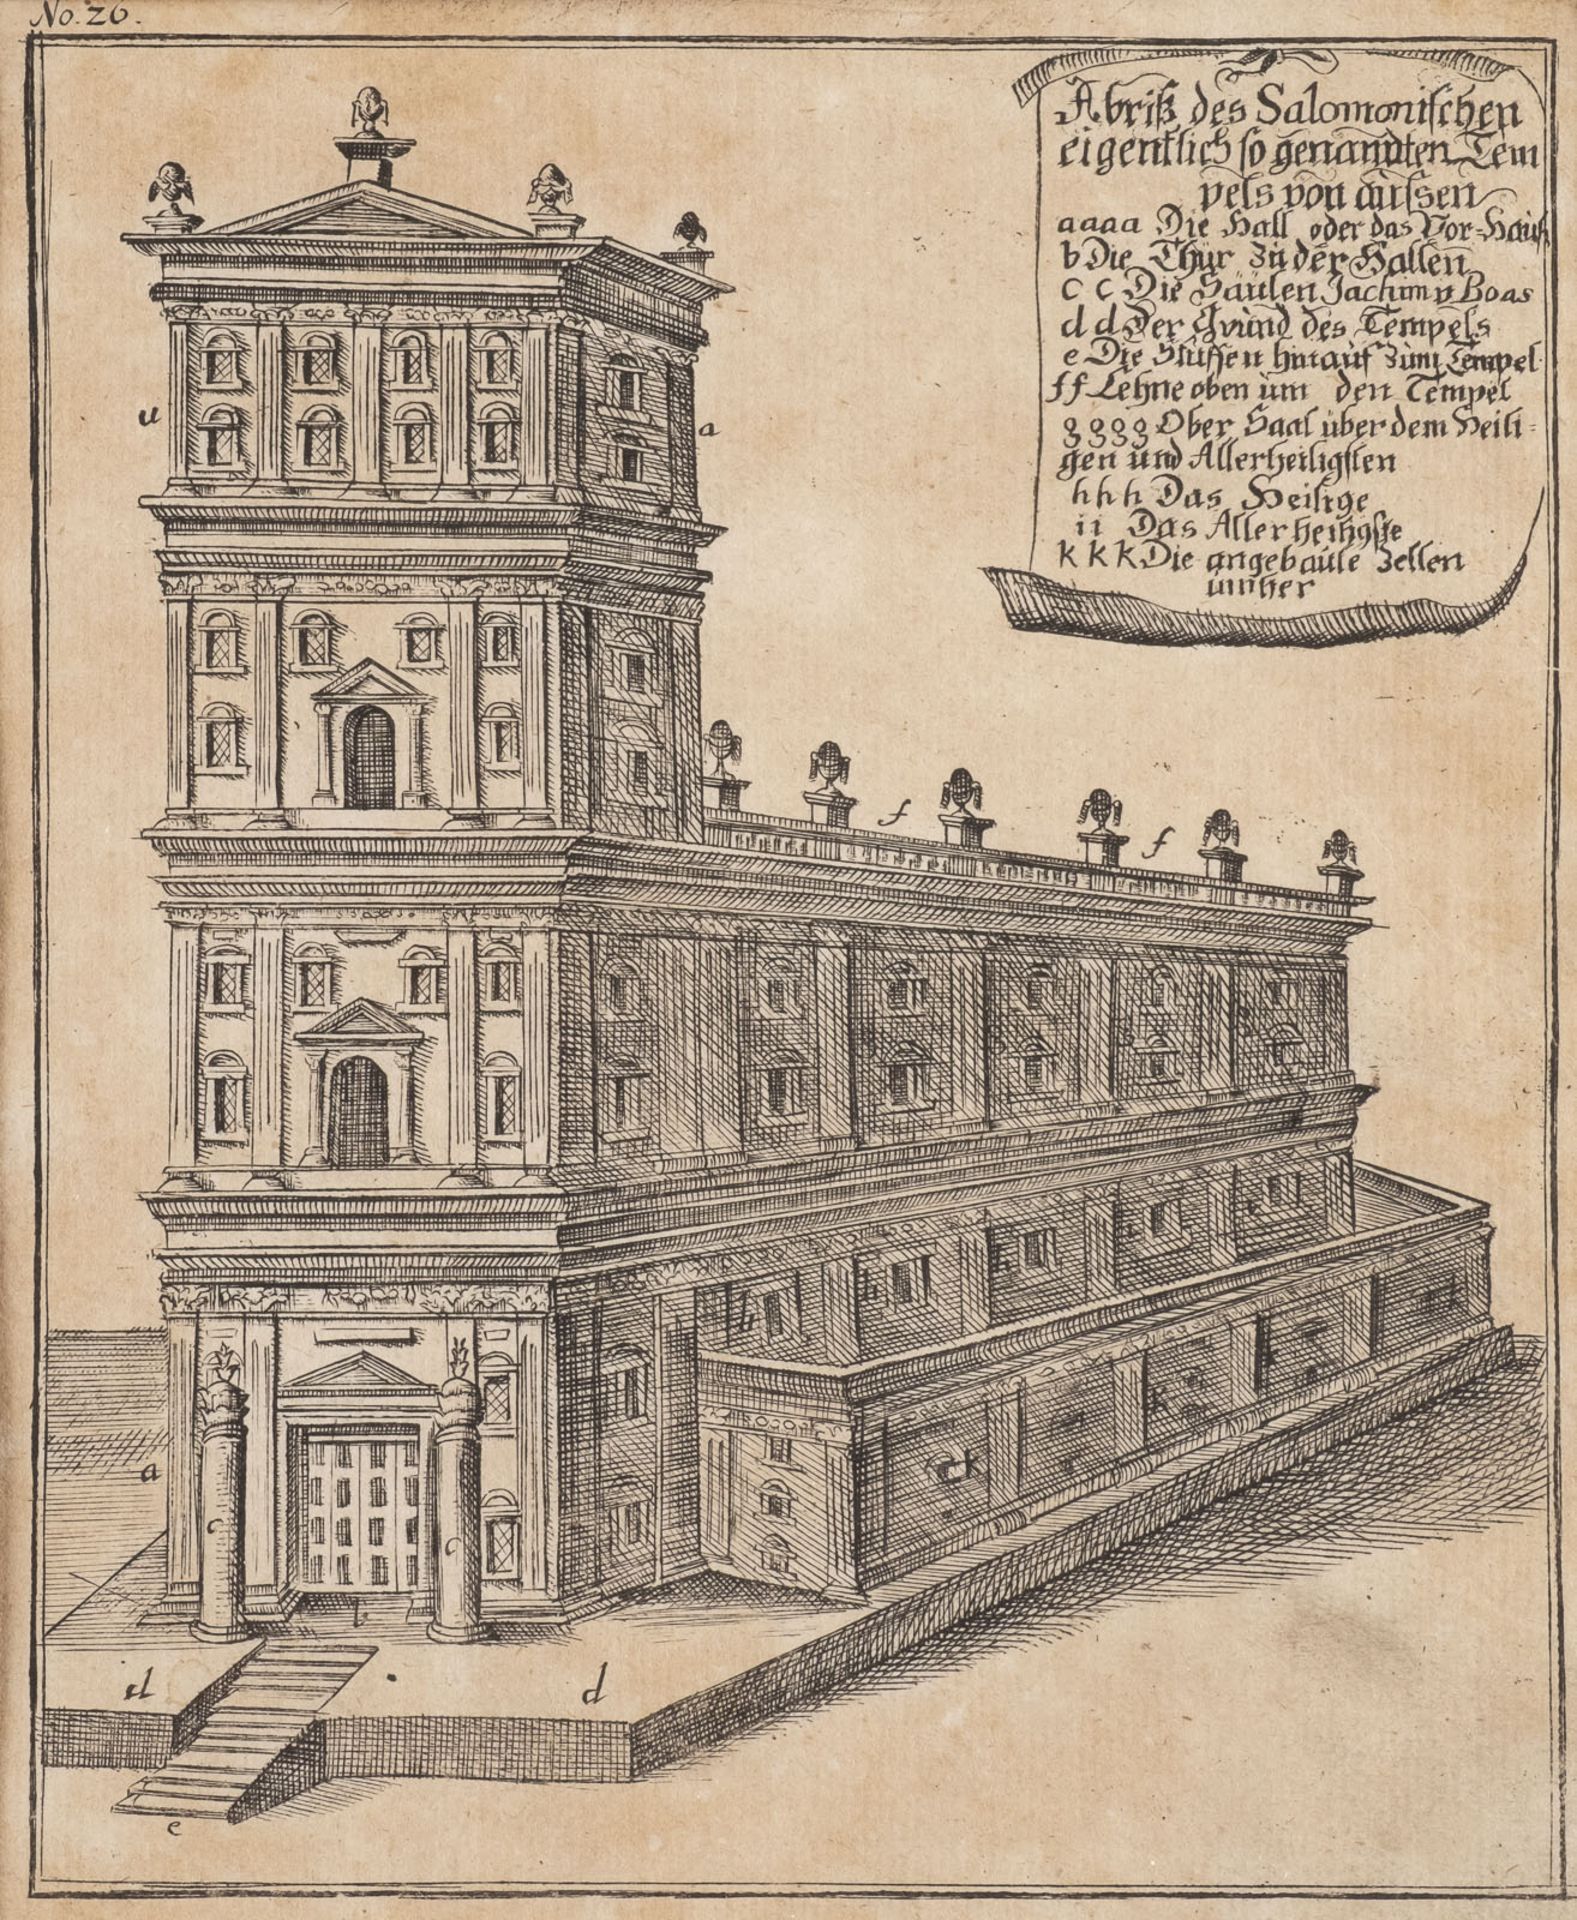 No. 26.
Abriß des Salomonischen
eigentlich so genandten Tem
pels von aussen
a a a a Die Hall oder das Vor-Hauß
b Die Thür zu der Hallen
c c Die Säulen Jachim v Boas
d d Der Grund des Tempels
e Die Stuffen hinauf zum Tempel
f f Lehne oben um den Tempel
g g g g Ober Saal über dem Heili=
gen und Allerheiligsten
h h h Das Heilige
i i Das Allerheiligste
k k k Die angebaute Zellen
umher
a
a
f
f
h
k
a
c
c
b
d
d
e